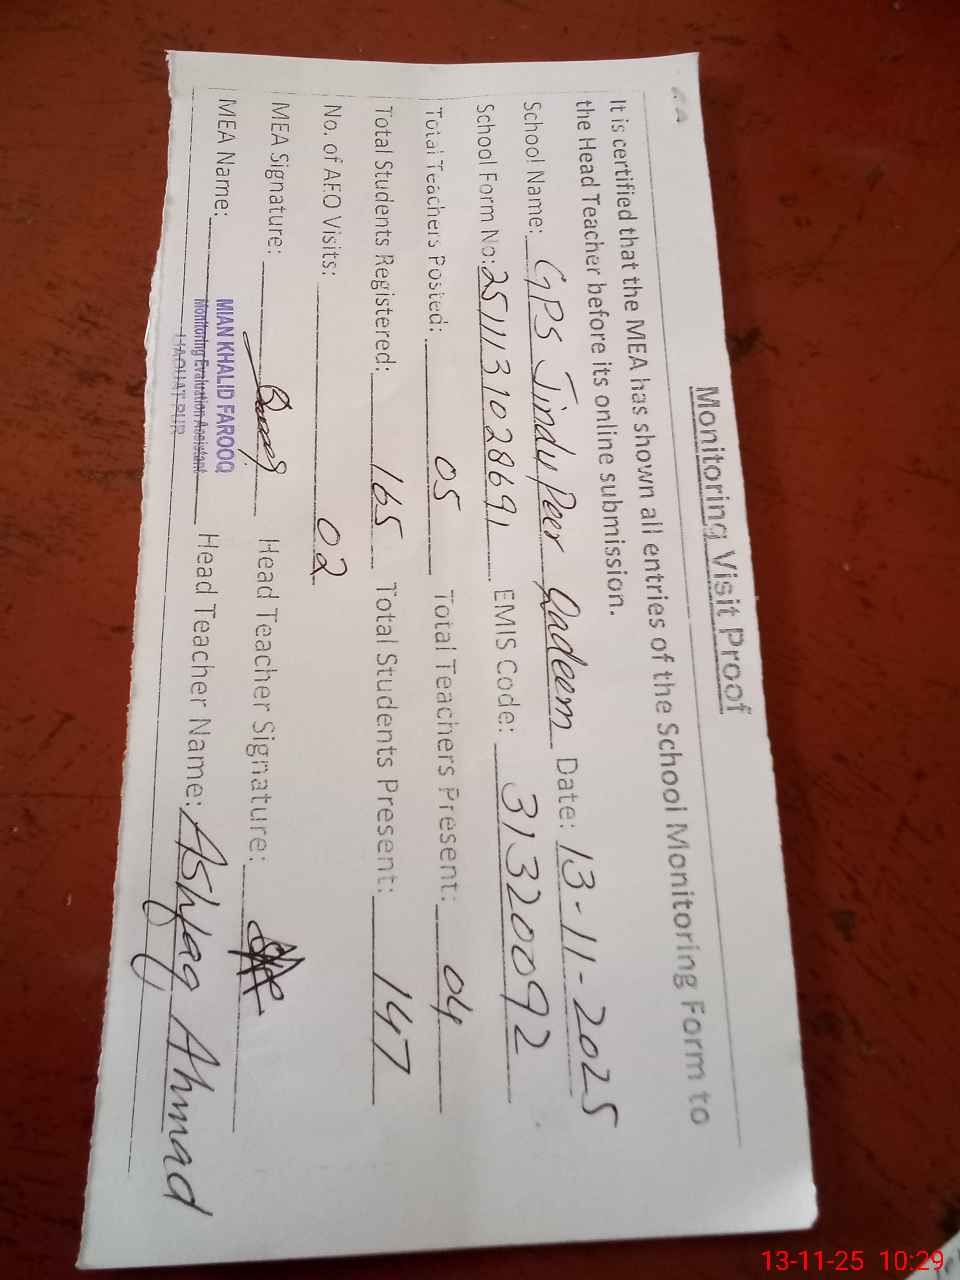 Monitoring Visit Proof
It is certified that the MEA has shown all entries of the School Monitoring Form to
the Head Teacher before its online submission.
School Name: GPS Jindu Peer Qadeem Date: 13-11-2025
School Form No: 2511131028691 EMIS Code: 31320092
Total Teachers Posted: 05 Total Teachers Present: 04
Total Students Registered: 165 Total Students Present: 147
No. of AEO Visits: 02
MEA Signature: Head Teacher Signature:
MEA Name: MIAN KHALID FAROOQ Head Teacher Name: Ashfaq Ahmad
Monitoring Evaluation Assistant
LIAQUAT PUR
13-11-25 10:29